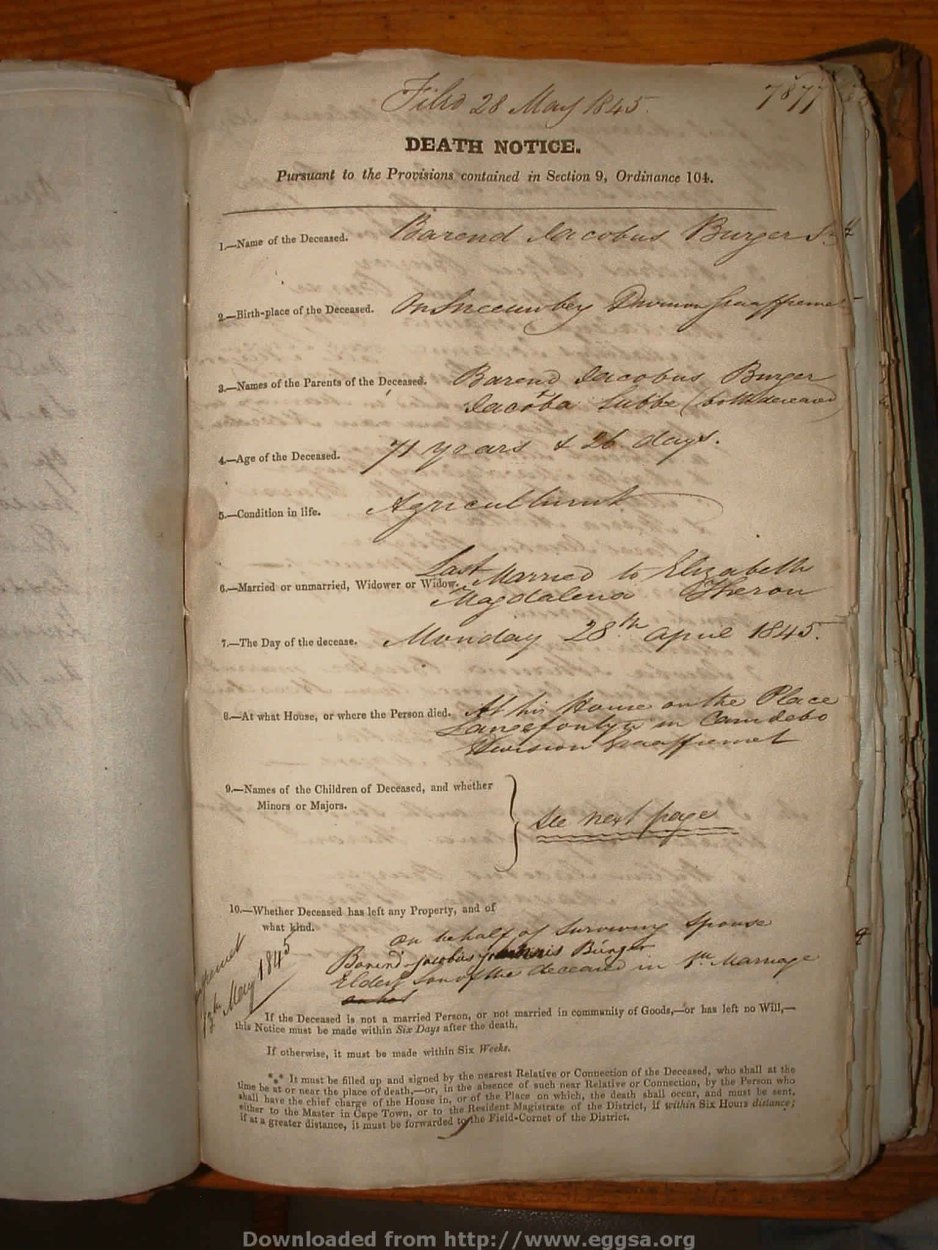 Filed 28 May 1845 7877
DEATH NOTICE.
Pursuant to the Provisions contained in Section 9, Ordinance 104.
1.—Name of the Deceased. Barend Jacobus Burger Sr
2.—Birth-place of the Deceased. Division Graaffreinet
3.—Names of the Parents of the Deceased. Barend Jacobus Burger
Jacoba Lubbe (both deceased)
4.—Age of the Deceased. 71 years & 26 days.
5.—Condition in life. Agriculturist
6.—Married or unmarried, Widower or Widow. Last Married to Elizabeth
Magdalena Theron
7.—The Day of the decease. Monday 28th April 1845.
8.—At what House, or where the Person died. At his House on the Place
in Camdebo
Division Graaffreinet
9.—Names of the Children of Deceased, and whether
Minors or Majors.
See next page
10.—Whether Deceased has left any Property, and of
what kind.
On behalf of Surviving Spouse
Barend Jacobus Burger
Eldest Son of the deceased in 1st Marriage
13th May 1845
If the Deceased is not a married Person, or not married in community of Goods,—or has left no Will,—
this Notice must be made within Six Days after the death.
If otherwise, it must be made within Six Weeks.
*** It must be filled up and signed by the nearest Relative or Connection of the Deceased, who shall at the
time be at or near the place of death,—or, in the absence of such near Relative or Connection, by the Person who
shall have the chief charge of the House in, or of the Place on which, the death shall occur, and must be sent,
either to the Master in Cape Town, or to the Resident Magistrate of the District, if within Six Hours distance;
if at a greater distance, it must be forwarded to the Field-Cornet of the District.
Downloaded from http://www.eggsa.org